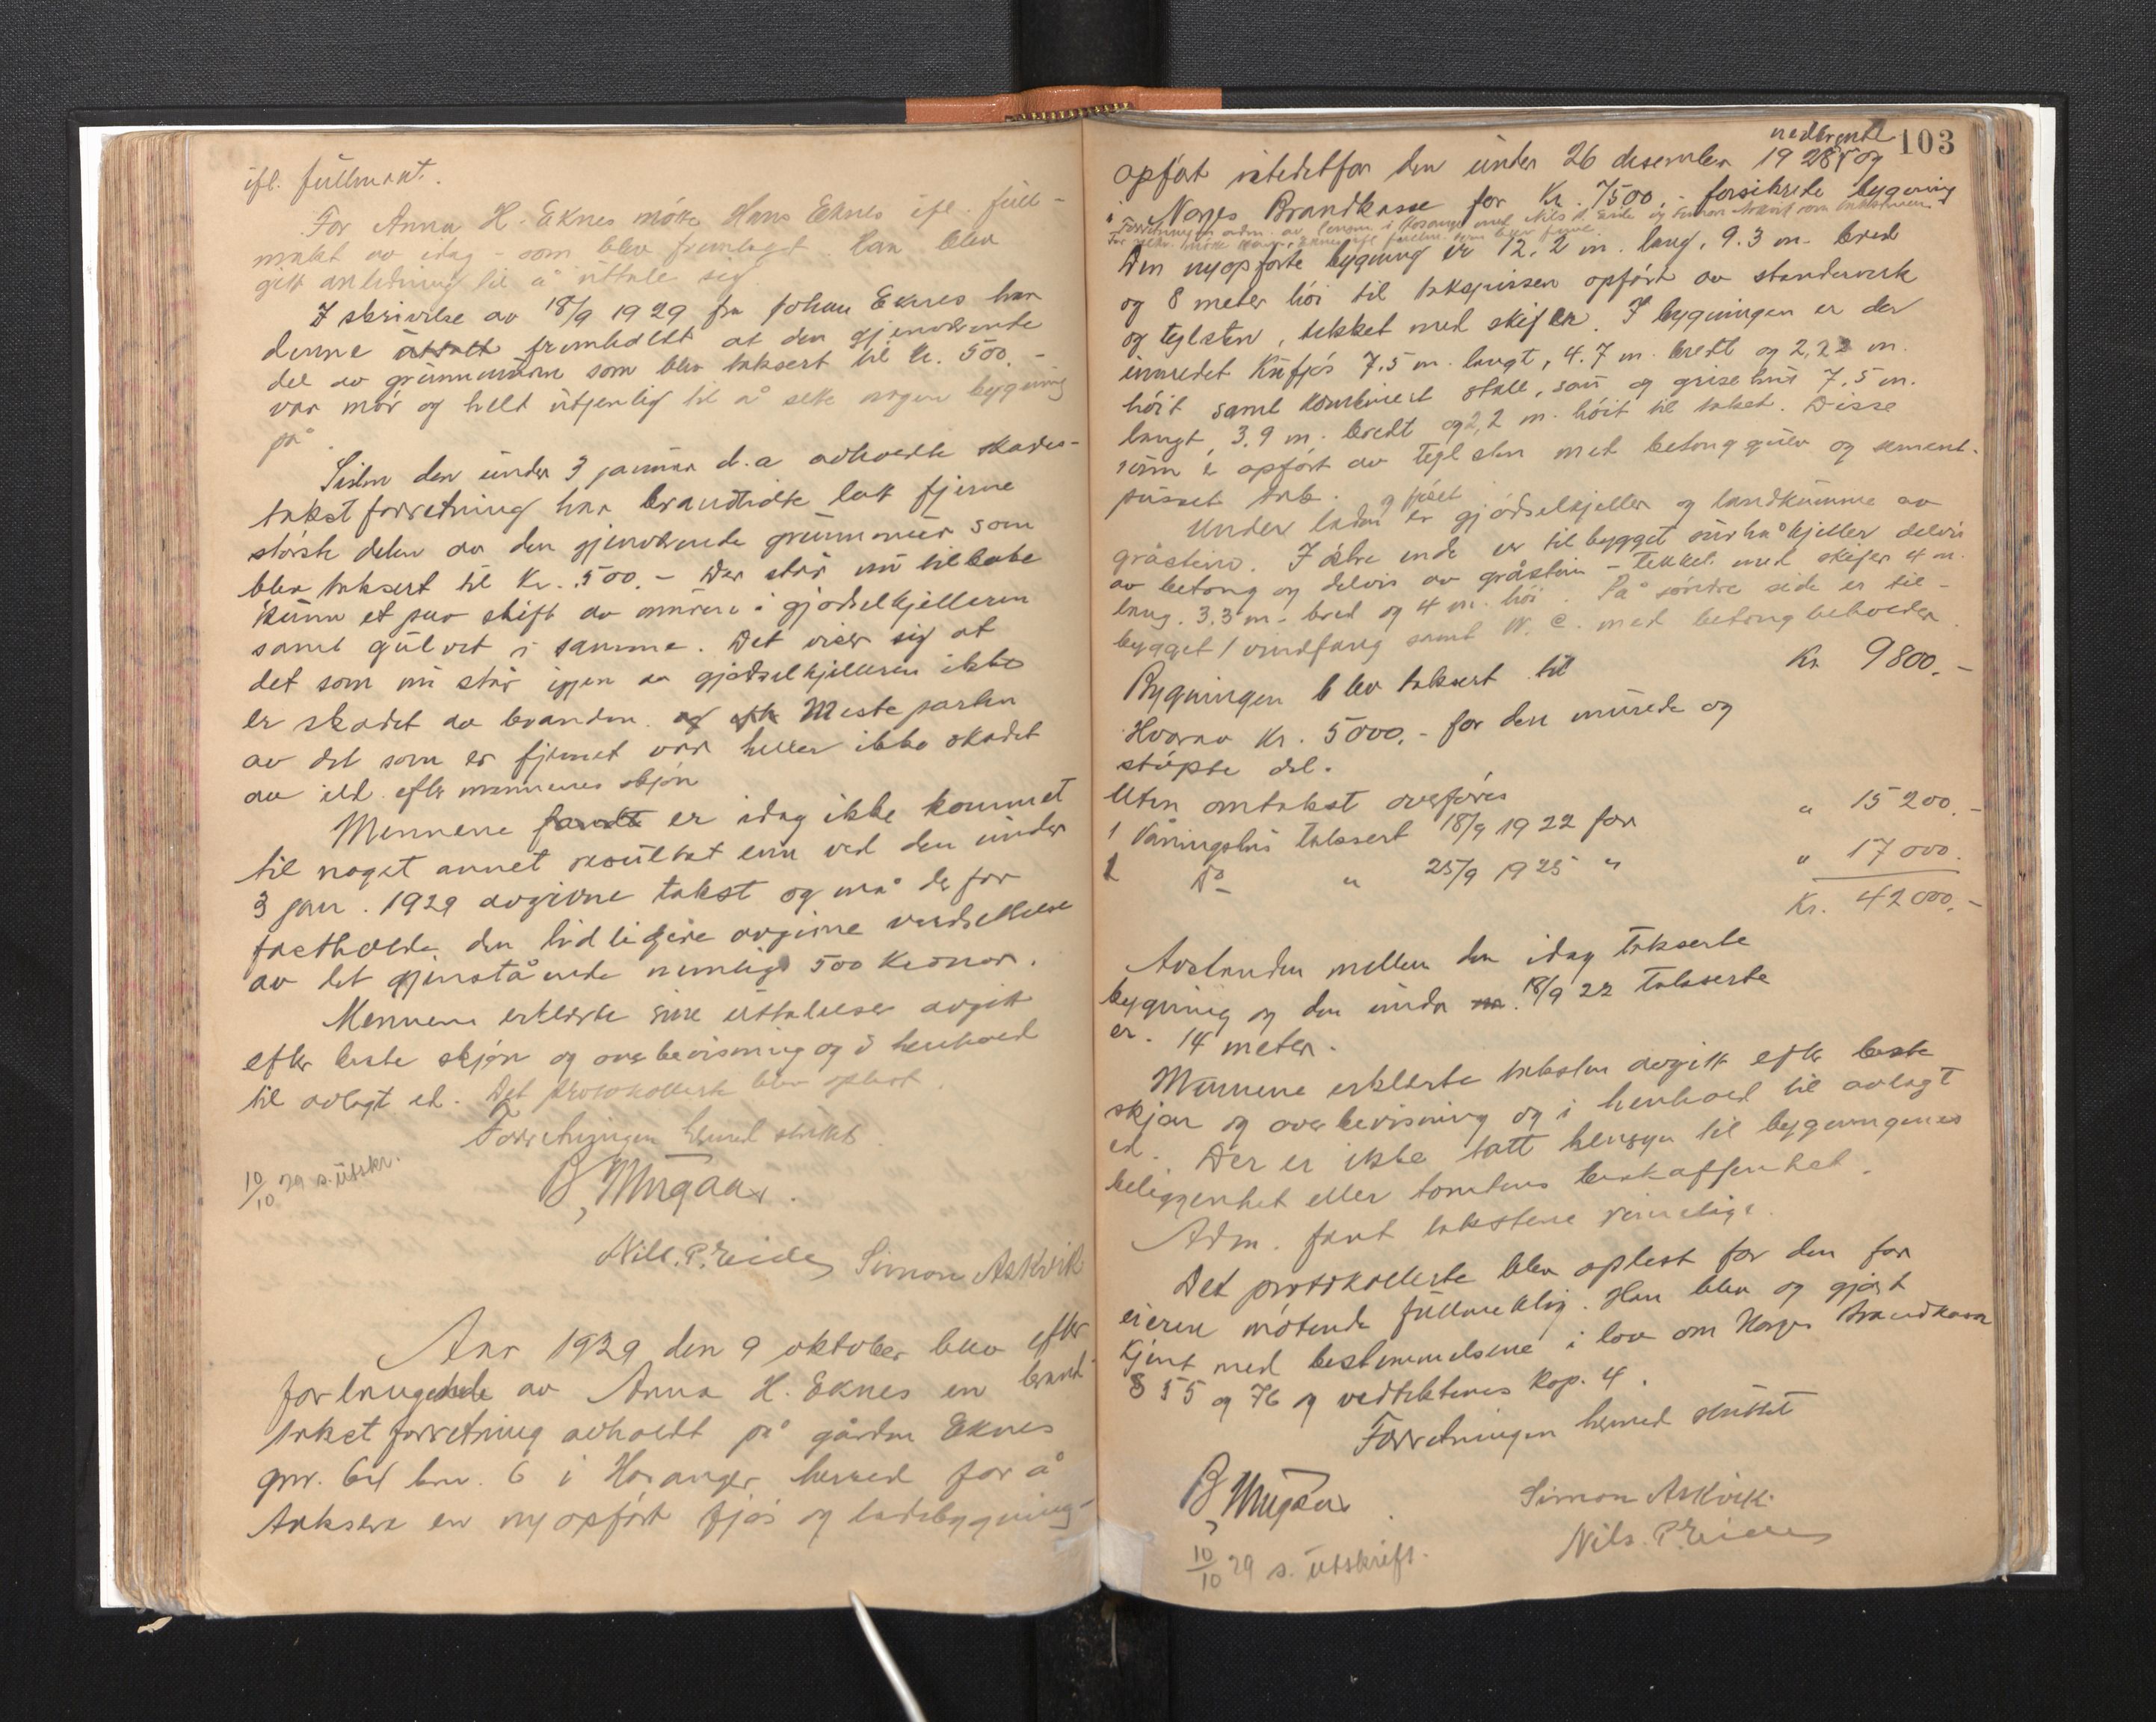 ifl. fullmakt.
For Anna H. Eknes møtte Hans Eknes ifl. full-
makt av idag - som blev fremlagt. Han blev
gitt anledning til å uttale sig.
I skrivelse av 18/9 1929 fra Johan Eknes har
denne uttalt fremholdt at den gjenværende
del av grunnmuren som blev taksert til kr. 500.-
var mør og helt utjenlig til å sette nogen bygning
på.
Siden den under 3 januar d.a avholdte skades-
takstforretning har brandlidte latt fjerne
største delen av den gjenværende grunnmur som
blev taksert til Kr. 500.- Der står nu tilbake
kunn et par skift av murene i gjødselkjelleren
samt gulvet i samme. Det viser sig at
det som nu står igjen av gjødselkjelleren ikke
er skadet av branden. og efte Mesteparten
av det som er fjernet var heller ikke skadet
av ild efter mennenes skjøn
Mennene fandt er idag ikke kommet
til noget annet resultat enn ved den under
3 jan. 1929 avgivne takst og må derfor
fastholde den tidligere avgivne verdsettelse
av det gjenstående nemlig 500 kronor.
Mennene erklærte sine uttalelser avgitt
efter beste skjøn og overbevisning og i henhold
til avlagt ed. Det protokollerte blev oplest.
Forretningen hermed sluttet.
10/10 29 s. utskr.
B, Mugaas.
Nils. P. Eide Simon Askvik
Aar 1929 den 9 oktober blev efter
forlangende av Anna H. Eknes en brand-
takstforretning avholdt på gården Eknes
gnr. 64 bnr. 6 i Hosanger herred for å
taksere en nyopført fjøs og ladebygning-
103
nedbrente
opført istedetfor den under 26 desember 1928 og
i Norges Brandkasse for Kr. 7500,- forsikrede bygning
Forretningen adm. av lensm. i Hosanger med Nils P. Eide og Simon Askvik som takstmenn
For rekv. møtte Hans Eknes ifl. fullm. som blev freml.
Den nyopførte bygning er 12,2 m. lang, 9.3 m. bred
og 8 meter høi til takspissen opført av standerverk
og teglsten, tekket med skifer. I bygningen er der
innredet Kufjøs 7.5 m. langt, 4.7 m. bredt og 2,22 m.
høit samt kombinert stall, sau og grisehus 7,5 m.
langt, 3.9 m. bredt og 2,2 m. høit til taket. Disse
rum e opført av teglsten med betonggulv og sement-
pusset tak.
og fjøset
Under laden er gjødselkjeller og landkumme av
gråstein. I østre ende er tilbygget surhåkjeller delvis
av betong og delvis av gråstein - tekket med skifer 4 m.
lang. 3.3 m. bred og 4 m. høi. På søndre side er til-
bygget 1 vindfang samt W. C. med betongbeholder.
Bygningen blev taksert til Kr 9800.-
Hvorav Kr. 5000.- for den murede og
støpte del.
Uten omtakst overføres
1 Våningshus taksert 18/9 1922 for " 15200.-
1 Do " 25/9 1925 " " 17000.
Kr. 42000.-
Avstanden mellem den idag takserte
bygning og den under 18/9 22 takserte
er. 14 meter.
Mennene erklærte taksten avgitt efter beste
skjøn og overbevisning og i henhold til avlagt
ed. Der er ikke tatt hensyn til bygningenes
beliggenhet eller tomtens beskaffenhet.
Adm. fant takstene rimelige.
Det protokollerte blev oplest for den for
eieren møtende fullmektig. Han blev og gjort
kjent med bestemmelsene i lov om Norges Brandkasse
§ 55 og 76 og vedtektenes kap. 4.
Forretningen hermed sluttet
B, Mugaas
Simon Askvik.
Nils. P. Eide
10/10 29 s. utskrift.